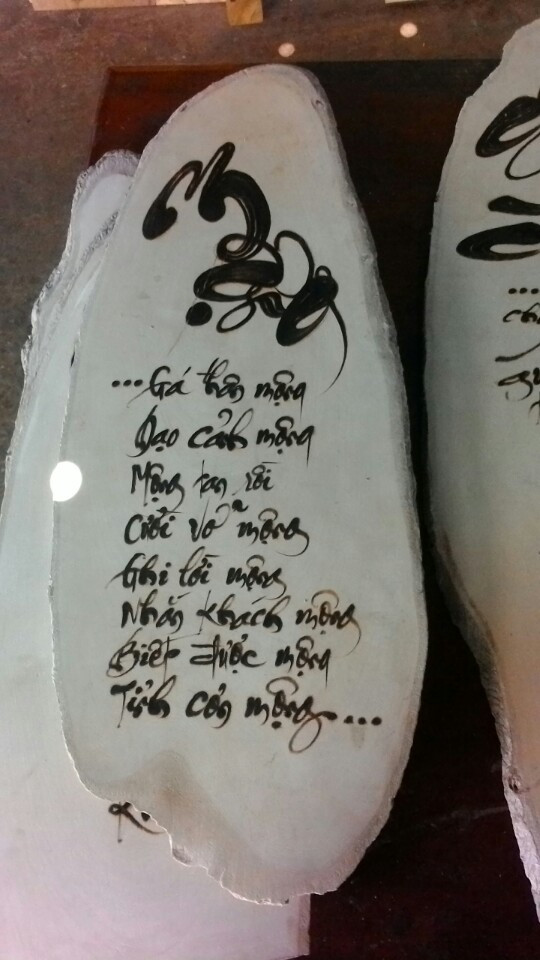 Mộng
...Gá thân mộng
Dạo cảnh mộng
Mộng tan rồi
Cười vỡ mộng
Ghi lời mộng
Nhắn khách mộng
Biết được mộng
Tỉnh cơn mộng....